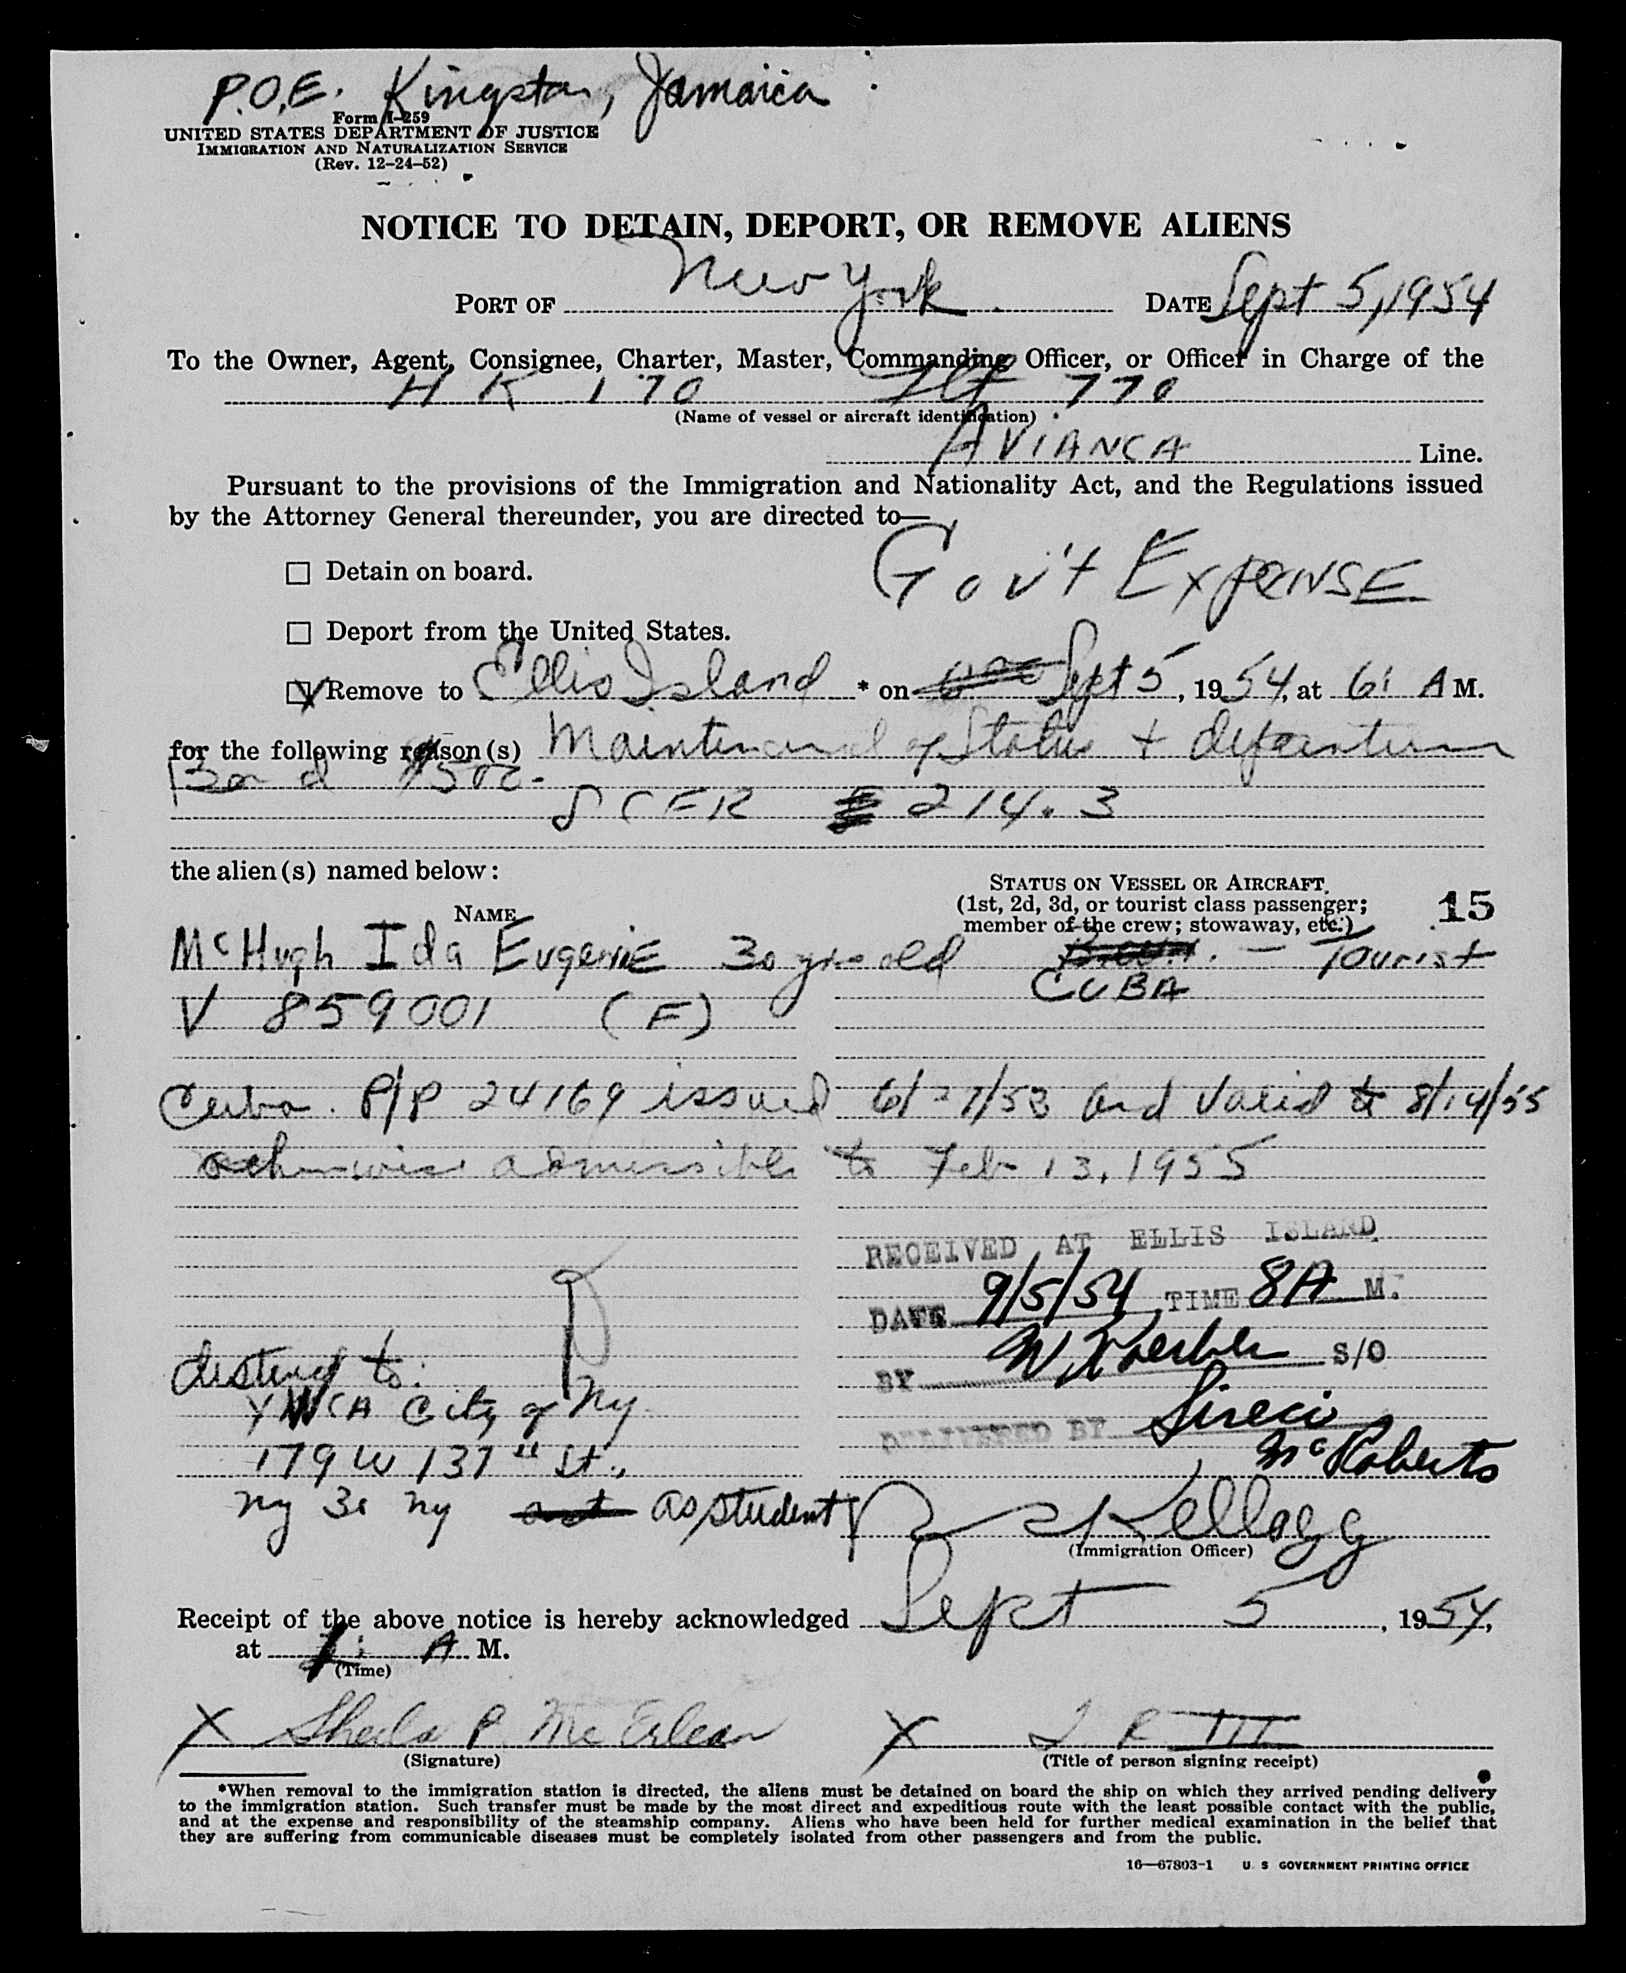 P.O.E. Kingston, Jamaica
Form I-259
UNITED STATES DEPARTMENT OF JUSTICE
IMMIGRATION AND NATURALIZATION SERVICE
(Rev. 12-24-52)
NOTICE TO DETAIN, DEPORT, OR REMOVE ALIENS
PORT OF New York DATE Sept 5, 1954
To the Owner, Agent, Consignee, Charter, Master, Commanding Officer, or Officer in Charge of the
H K 170 Flt 770
(Name of vessel or aircraft identification)
AVIANCA Line.
Pursuant to the provisions of the Immigration and Nationality Act, and the Regulations issued
by the Attorney General thereunder, you are directed to—
☐ Detain on board.
Gov't EXPENSE
☐ Deport from the United States.
☒ Remove to Ellis Island * on Sept 5, 1954, at 6: A M.
for the following reason(s) Maintenance of Status + departure
Bond $500.-
8 CFR 214.3
the alien(s) named below:
STATUS ON VESSEL OR AIRCRAFT
(1st, 2d, 3d, or tourist class passenger;
member of the crew; stowaway, etc.)
15
NAME
McHugh Ida EugeniE 30 yrs old — Tourist
CUBA
V 859001 (F)
Cuba. P/P 24169 issued 6/27/53 and valid to 8/14/55
otherwise admissible to Feb 13, 1955
RECEIVED AT ELLIS ISLAND
DATE 9/5/54 TIME 8A M.
BY S/O
DELIVERED BY Sireci
McRoberts
destined to:
YWCA City of NY
179 W 137" St.,
NY 30 NY as student
Kellogg
(Immigration Officer)
Receipt of the above notice is hereby acknowledged Sept 5, 1954,
at A M.
(Time)
X Sheila P. McErlean X
(Signature) (Title of person signing receipt)
*When removal to the immigration station is directed, the aliens must be detained on board the ship on which they arrived pending delivery
to the immigration station. Such transfer must be made by the most direct and expeditious route with the least possible contact with the public,
and at the expense and responsibility of the steamship company. Aliens who have been held for further medical examination in the belief that
they are suffering from communicable diseases must be completely isolated from other passengers and from the public.
16—67803-1 U. S. GOVERNMENT PRINTING OFFICE